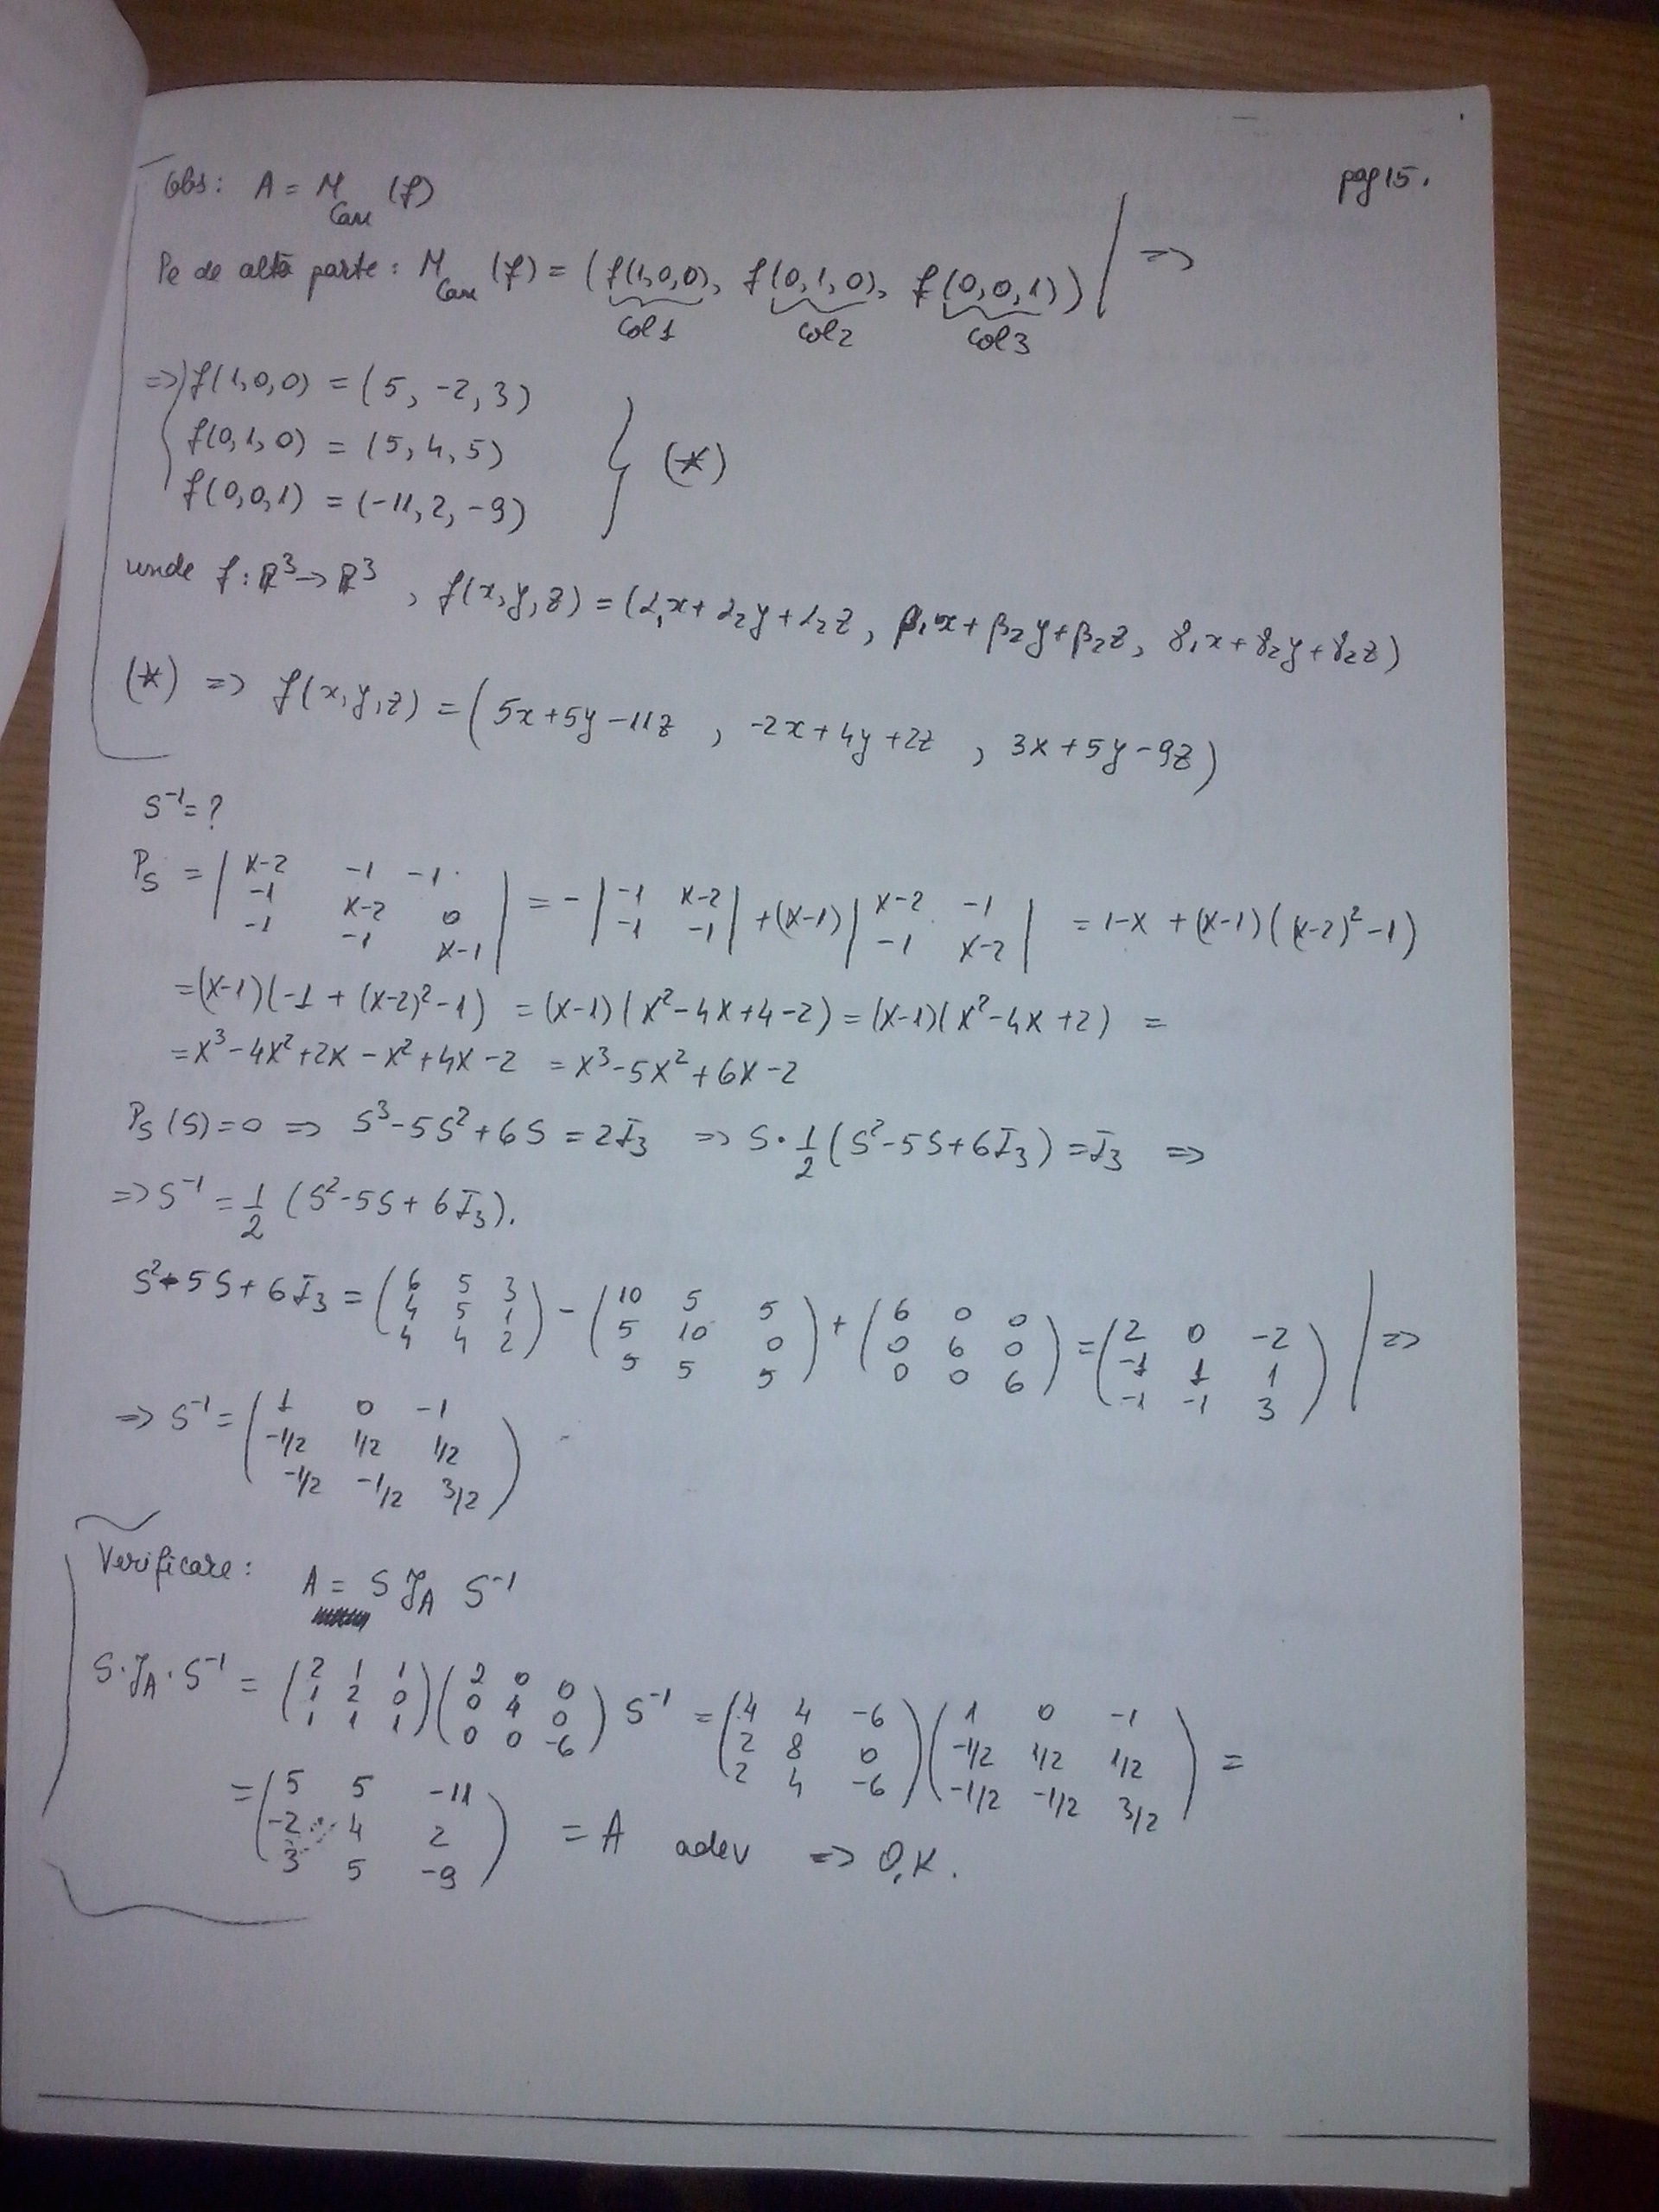 pag 15.
Obs: A = M_Can (f)
Pe de altă parte: M_Can (f) = (f(1,0,0), f(0,1,0), f(0,0,1)) | =>
col1 col2 col3
=> f(1,0,0) = (5, -2, 3)
f(0,1,0) = (5, 4, 5) } (*)
f(0,0,1) = (-11, 2, -9)
unde f: R³ → R³, f(x,y,z) = (α₁x + α₂y + α₂z, β₁x + β₂y + β₂z, γ₁x + γ₂y + γ₂z)
(*) => f(x,y,z) = (5x+5y-11z, -2x+4y+2z, 3x+5y-9z)
S⁻¹ = ?
P_S = | X-2 -1 -1 ; -1 X-2 0 ; -1 -1 X-1 | = - | -1 X-2 ; -1 -1 | + (X-1) | X-2 -1 ; -1 X-2 | = 1-X + (X-1)((X-2)²-1)
= (X-1)(-1 + (X-2)²-1) = (X-1)(X²-4X+4-2) = (X-1)(X²-4X+2) =
= X³-4X²+2X-X²+4X-2 = X³-5X²+6X-2
P_S(S)=0 => S³-5S²+6S = 2I₃ => S·1/2(S²-5S+6I₃) = I₃ =>
=> S⁻¹ = 1/2 (S²-5S+6I₃).
S²-5S+6I₃ = ( 6 5 3 ; 4 5 1 ; 4 4 2 ) - ( 10 5 5 ; 5 10 0 ; 5 5 5 ) + ( 6 0 0 ; 0 6 0 ; 0 0 6 ) = ( 2 0 -2 ; -1 1 1 ; -1 -1 3 ) | =>
=> S⁻¹ = ( 1 0 -1 ; -1/2 1/2 1/2 ; -1/2 -1/2 3/2 )
Verificare: A = S J_A S⁻¹
S·J_A·S⁻¹ = ( 2 1 1 ; 1 2 0 ; 1 1 1 )( 2 0 0 ; 0 4 0 ; 0 0 -6 ) S⁻¹ = ( 4 4 -6 ; 2 8 0 ; 2 4 -6 )( 1 0 -1 ; -1/2 1/2 1/2 ; -1/2 -1/2 3/2 ) =
= ( 5 5 -11 ; -2 4 2 ; 3 5 -9 ) = A adev => O.K.